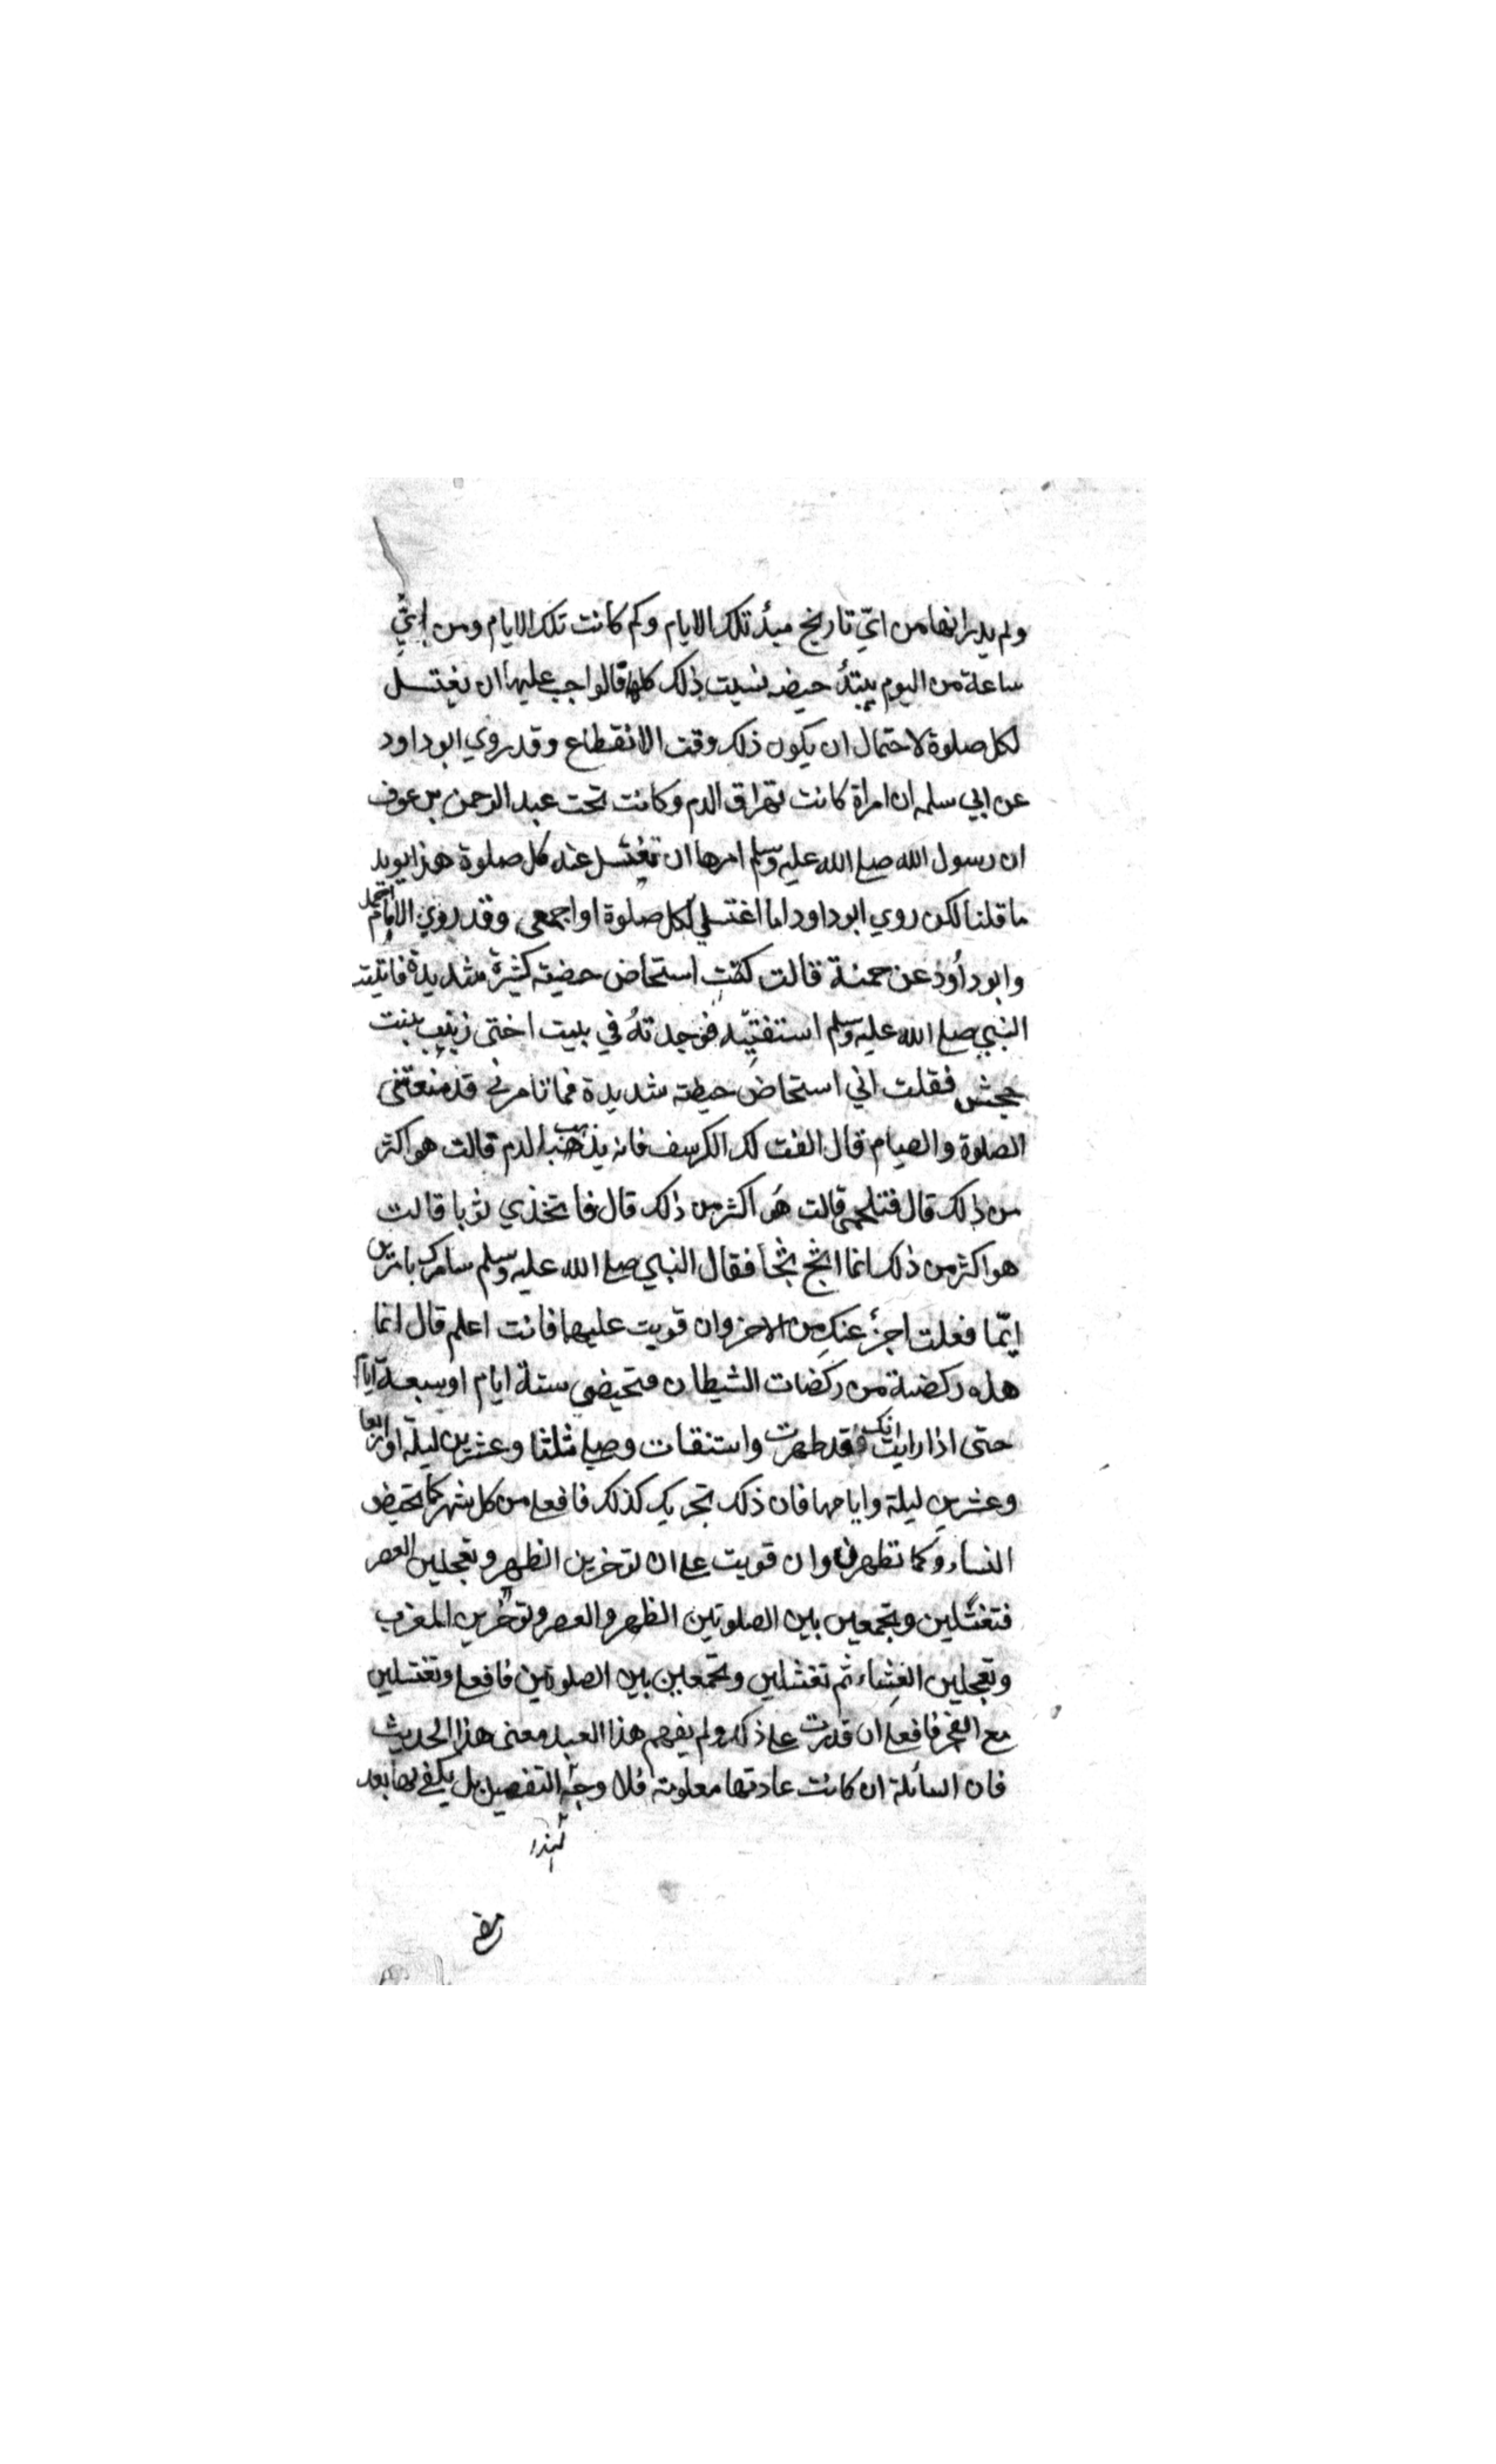 ولم يدر انها من ايّ تاريخ مبدأ تلك الايام وكم كانت تلك الايام ومن ايّ
ساعة من اليوم يبتدأ حيضه نسيت ذلك كلها قالواجب عليها ان يغتسل
لكل صلوة لاحتمال ان يكون ذلك وقت الانقطاع وقد روي ابو داود
عن ابي سلمه ان امراة كانت تهراق الدم وكانت تحت عبد الرحمن بن عوف
ان رسول الله صلے الله عليه وسلم امرها ان تغتسل عند كل صلوة هذا يويد
ما قلنا لكن روي ابو داود اما اغتسلي لكل صلوة او اجمعي وقد روي الامام احمد
وابو داود عن حمنة قالت كنت استحاض حضيته كثيرة شديدة فاتيت
النبي صلے الله عليه وسلم استفتيه فوجدته في بيت اختى زينب بنت
جحش فقلت اني استحاض حيطته شديدة فما تامرنى قد منعتنى
الصلوة والصيام قال انعت لك الكرسف فانه يذهب الدم قالت هو اكثر
من ذلك قال فتلجمى قالت هو اكثر من ذلك قال فاتخذي ثوبا قالت
هو اكثر من ذلك انما اثج ثجا فقال النبي صلے الله عليه وسلم سامرك بامرين
ايّما فعلت اجزأ عنكِ من الاخر وان قويت عليهما فانت اعلم قال انما
هذه ركضة من ركضات الشيطان فتحيضى ستة ايام او سبعة ايام
حتى اذا رايت انك قد طهرت واستنقات وصلے ثلثا وعشرين ليلة او اربعا
وعشرين ليلة وايامها فان ذلك تجريك كذلك فافعلے من كل شهر كما تحيض
النساء وكما تطهرن وان قويت علے ان توخرين الظهر وتعجلين العصر
فتغتسلين وتجمعين بين الصلوتين الظهر والعصر وتوخرين المغرب
وتعجلين العشاء ثم تغتسلين وتجمعين بين الصلوتين فافعلے وتغتسلين
مع الفجر فافعلے ان قدرت علے ذلك ولم يفهم هذا العبد معنى هذا الحديث
فان السائلة ان كانت عادتها معلومة فلا وجه التفصيل بل يكفے لها بعد